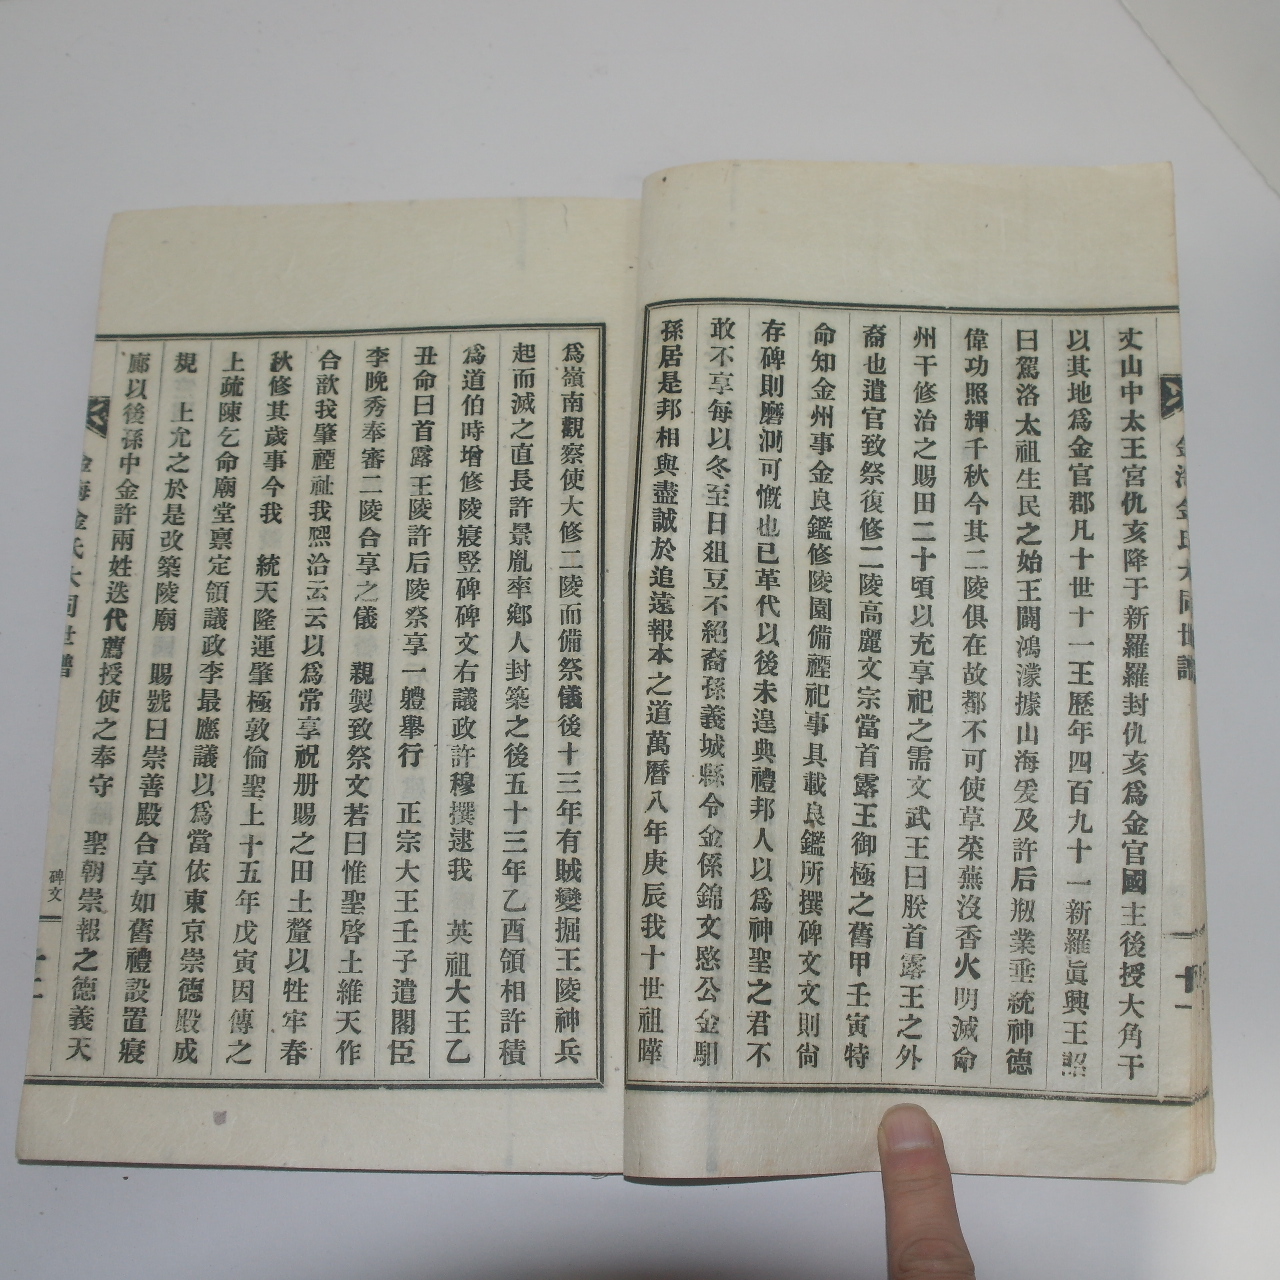 丈山中太王宮仇亥降于新羅羅封仇亥爲金官國主後授大角干
以其地爲金官郡凡十世十一王歷年四百九十一新羅眞興王詔
曰駕洛太祖生民之始王闢鴻濛據山海爰及許后刱業垂統神德
偉功照輝千秋今其二陵俱在故都不可使草萊蕪沒香火明滅命
州干修治之賜田二十頃以充享祀之需文武王曰朕首露王之外
裔也遣官致祭復修二陵高麗文宗當首露王御極之舊甲壬寅特
命知金州事金良鑑修陵園備禋祀事具載良鑑所撰碑文文則尙
存碑則磨泐可慨也已革代以後未遑典禮邦人以爲神聖之君不
敢不享每以冬至日俎豆不絕裔孫義城縣令金係錦文愍公金馹
孫居是邦相與盡誠於追遠報本之道萬曆八年庚辰我十世祖曄
金海金氏大同世譜
十一
爲嶺南觀察使大修二陵而備祭儀後十三年有賊變掘王陵神兵
起而滅之直長許景胤率鄕人封築之後五十三年乙酉領相許積
爲道伯時增修陵寢竪碑碑文右議政許穆撰逮我 英祖大王乙
丑命曰首露王陵許后陵祭享一體舉行 正宗大王壬子遣閣臣
李晚秀奉審二陵合享之儀 親製致祭文若曰惟聖啓土維天作
合歆我肇禋祉我熙洽云云以爲常享祝册賜之田土釐以牲牢春
秋修其歲事今我 統天隆運肇極敦倫聖上十五年戊寅因傳之
上疏陳乞命廟堂稟定領議政李最應議以爲當依東京崇德殿成
規 上允之於是改築陵廟 賜號曰崇善殿合享如舊禮設置寢
廊以後孫中金許兩姓迭代薦授使之奉守 聖朝崇報之德義天
金海金氏大同世譜
碑文
十二